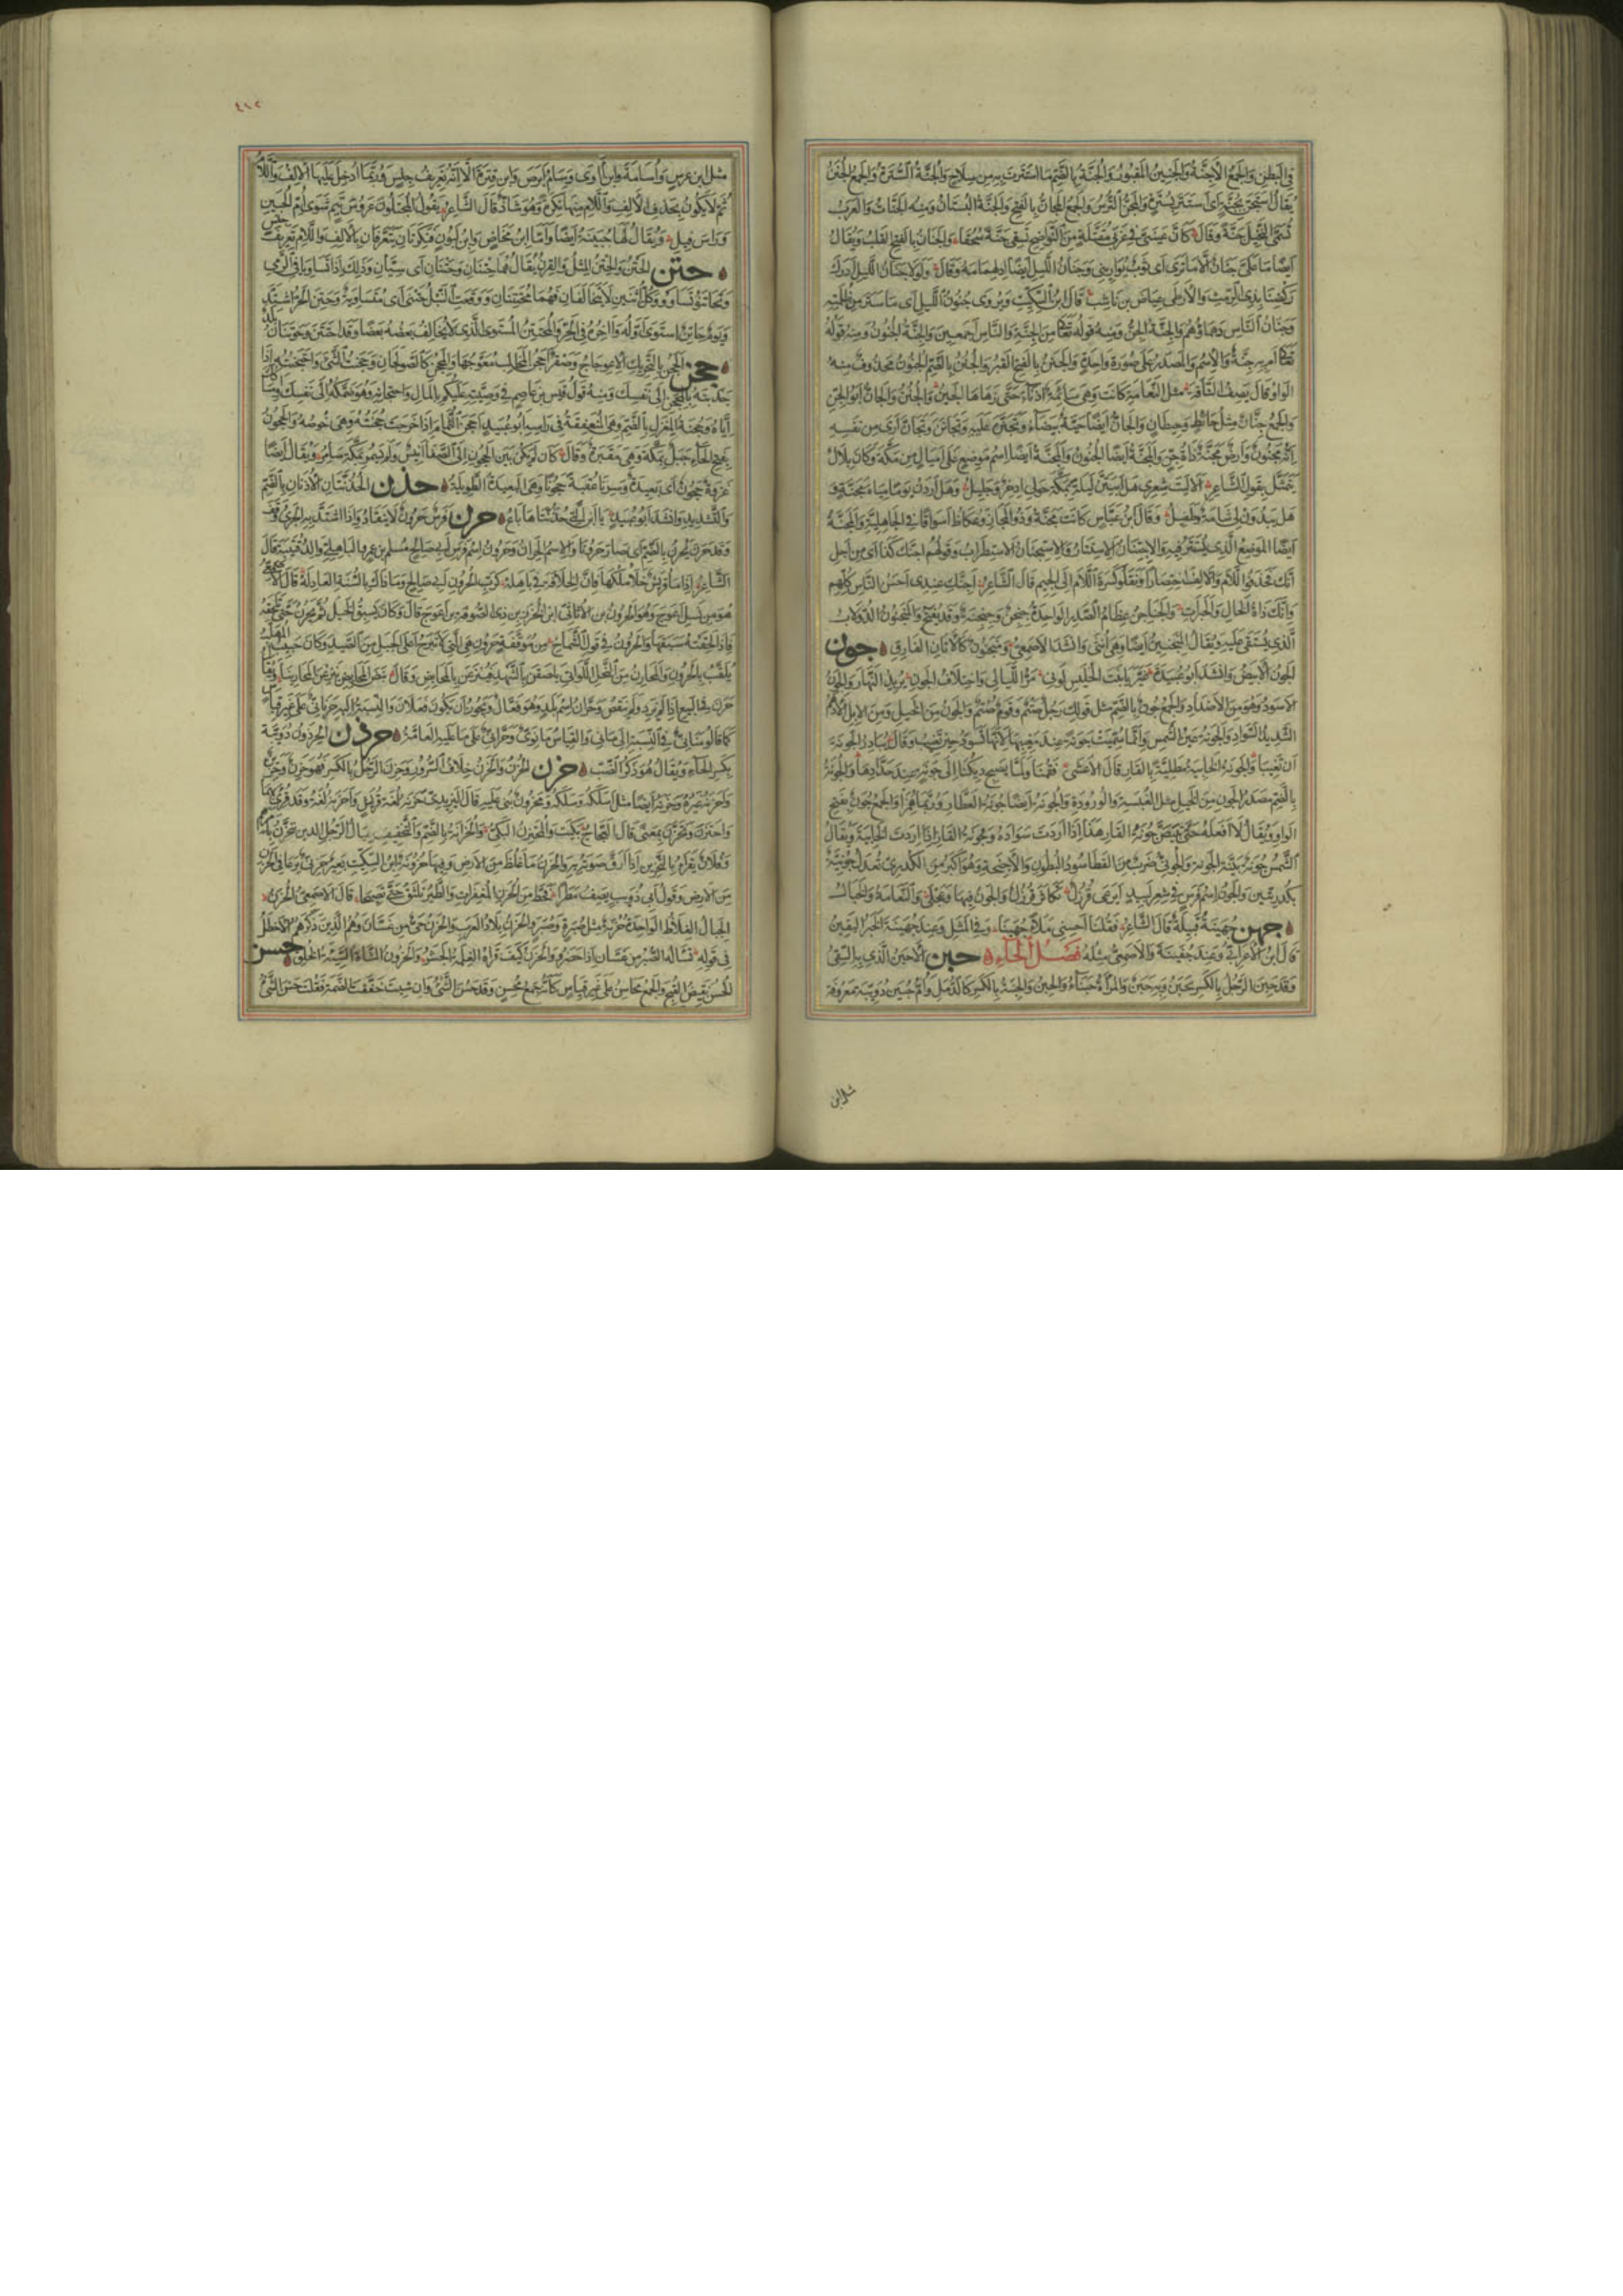 في البطن والجمع الأجنة والجنين المقبور والجنة بالضم ما استترت به من سلاح والجنة السترة والجمع الجنن
يقال استجن بجنة أي استتر بسترة والمجن الترس والجمع المجان بالفتح والجنة البستان ومنه الجنات والعرب
تسمى النخيل جنة وقال كأن عيني في غربي مقتلة من النواضح تسقي جنة سحقا والجنان بالفتح القلب ويقال
أيضا ما علي جنان إلا ما ترى أي ثوب يواريني وجنان الليل أيضا ادلهمامه وقال ولولا جنان الليل أدرك
ركضنا بذي الرمث والأرطى عياض بن ناشب قال ابن السكيت ويروى جنون الليل أي ما ستر من ظلمته
وجنان الناس دهماؤهم والجنة الجن ومنه قوله تعالى من الجنة والناس أجمعين والجنة الجنون ومنه قوله
تعالى أم به جنة والاسم والمصدر على صورة واحدة والجنن بالفتح القبر والجنن بالضم الجنون محذوف منه
الواو قال يصف الناقة مثل النعامة كانت وهي سائمة أذناء حتى زهاها الحين والجنن والجان أبو الجن
والجمع جنان مثل حائط وحيطان والجان أيضا حية بيضاء وتجنن عليه وتجانن وتجان أرى من نفسه
أنه مجنون وأرض مجنة ذات جن والمجنة أيضا الجنون والمجنة أيضا اسم موضع على أميال من مكة وكان بلال
يتمثل بقول الشاعر ألا ليت شعري هل أبيتن ليلة بمكة حولي إذخر وجليل وهل أردن يوما مياه مجنة و
هل يبدون لي شامة وطفيل وقال ابن عباس كانت مجنة وذو المجاز وعكاظ أسواقا في الجاهلية والمجنة
أيضا الموضع الذي يستتر فيه والاجتنان الاستتار والاستجنان الاستطراب وقولهم أجنك كذا أي من أجل
أنك فحذفوا اللام والألف اختصارا ونقلوا كسرة اللام إلى الجيم قال الشاعر أجنك عندي أحسن الناس كلهم
وأنك ذات الخال والحبرات والجناجن عظام الصدر الواحدة جنجن وجنجنة وقد يفتح والمنجنون الدولاب
الذي يستقى عليه ويقال المنجنين أيضا وهي أنثى وأنشد الأصمعي ومنجنون كالأتان الفارق جون
الجون الأبيض وأنشد أبو عبيدة غير يا بنت الحليس لوني مر الليالي واختلاف الجون يريد النهار والجون
الأسود وهو من الأضداد والجمع جون بالضم مثل قولك رجل صتم وقوم صتم والجون من الخيل ومن الإبل الأدهم
الشديد السواد والجونة عين الشمس وإنما سميت جونة عند مغيبها لأنها تسود حين تغيب وقال يبادر الجونة
أن تغيبا والجونة الخابية مطلية بالقار قال الأعشى فقمنا ولما يصح ديكنا إلى جونة عند حدادها والجونة
بالضم مصدر الجون من الخيل مثل الغبسة والوردة والجونة أيضا جونة العطار وربما همزوا والجمع جون بفتح
الواو ويقال لا أفعله حتى تبيض جونة القار هذا إذا أردت سواده وجونة القار إذا أردت الخابية ويقال
الشمس جونة بينة الجونة والجوني ضرب من القطا سود البطون والأجنحة وهو أكبر من الكدري تعدل جونية
بكدريتين والجون اسم فرس في شعر لبيد تكاثر قرزل والجون فيها وعجلى والنعامة والخيال
جهن جهينة قبيلة قال الشاعر فقلنا أحسني ملأ جهينا وفي المثل وعند جهينة الخبر اليقين
قال ابن الأعرابي وعند جفينة والأصمعي مثله فصل الحاء حبن الأحبن الذي به السقي
وقد حبن الرجل بالكسر يحبن وبه حبن والمرأة حبناء والحبن والحبنة بالكسر كالدمل وأم حبين دويبة معروفة
مثل ابن
٤١٢
مثل ابن عرس وأسامة وابن آوى وسام أبرص وابن قترة إلا أنه تعريف جنس وربما أدخل عليها الألف واللام
ثم لا يكون بحذف الألف واللام منها نكرة وهو شاذ قال الشاعر يقول المجتلون عروس تيم شوى أم الحبين
ورأس فيل ويقال لها حبينة أيضا وأما ابن مخاض وابن لبون فنكرتان يتعرفان بالألف واللام تعريف جنس
حتن الحتن والحتن المثل والقرن يقال هما حتنان وحتنان أي سيان وذلك إذا تساويا في الرمي
وتحاتنوا تساووا وكل اثنين لا يتخالفان فهما محتتنان ووقعت النبل حتنى أي متساوية وحتن الحر اشتد
ويوم حاتن استوى أوله وآخره في الحر والمحتتن المستوي الذي لا يخالف بعضه بعضا وقد احتتن وحوتنان بلد
حجن الحجن بالتحريك الاعوجاج وصقر أحجن المخالب معوجها والمحجن كالصولجان وحجنت الشيء واحتجنته إذا
جذبته بالمحجن إلى نفسك ومنه قول قيس بن عاصم في وصيته عليكم بالمال واحتجانه وهو ضمكه إلى نفسك وإمساكك
إياه وحجنة المغزل بالضم وهي المنعقفة في رأسه أبو عبيد أحجن الثمام إذا خرجت حجنته وهي خوصه والحجون
بفتح الحاء جبل بمكة وهي مقبرة وقال كأن لم يكن بين الحجون إلى الصفا أنيس ولم يسمر بمكة سامر ويقال أيضا
غزوة حجون أي بعيدة وسرنا عقبة حجونا وهي البعيدة الطويلة حذن الحذنتان الأذنان بالضم
والتشديد وأنشد أبو عبيد يا ابن التي حذنتاها باع حرن فرس حرون لا ينقاد وإذا اشتد به الجري وقف
وقد حرن يحرن وحرن بالضم أي صار حرونا والاسم الحران وحرون اسم فرس أبي صالح مسلم بن عمرو الباهلي والد قتيبة قال
الشاعر إذا ما قريش خلا ملكها فإن الخلافة في باهله لرب الحرون أبي صالح وما ذاك بالسنة العادله قال الأصمعي
هو من نسل أعوج وهو الحرون بن الأثاثي ابن الخزز بن ذي الصوفة بن أعوج قال وكان يسبق الخيل ثم يحرن حتى تلحقه
فإذا لحقته سبقها والحرون في قول الشماخ من موقفة حرون هي التي لا تبرح أعلى الجبل من الصيد وكان حبيب بن المهلب
يلقب بالحرون والمحارن من النحل اللواتي يلصقن بالشهد فينزعن بالمحابض وقال نبض المحابض ينزعن المحارينا ويقال
حرن في البيع إذا لم يزد ولم ينقص وحران اسم بلد وهو فعال ويجوز أن يكون فعلان والنسبة إليه حرناني على غير قياس
كما قالوا مناني في النسبة إلى ماني والقياس مانوي وحراني على ما عليه العامة حرذن الحرذون دويبة
بكسر الحاء ويقال هو ذكر الضب حزن الحزن والحزن خلاف السرور وحزن الرجل بالكسر فهو حزن وحزين
وأحزنه غيره وحزنه أيضا مثل أسلكه وسلكه ومحزون بني عليه قال اليزيدي حزنه لغة قريش وأحزنه لغة تميم وقد قرئ بهما
واحتزن وتحزن بمعنى قال العجاج بكيت والمحتزن البكي والحزانة بالضم والتخفيف عيال الرجل الذين يتحزن بأمرهم
وفلان يقرأ بالتحزين إذا أرق صوته به والحزن ما غلظ من الأرض وفيها حزونة ابن السكيت بعير حزني يرعى في الحزن
من الأرض وقول أبي ذؤيب يصف مطرا فحط من الحزن المغفرات والطير تلثق حتى تصيحا قال الأصمعي الحزن
الجبال الغلاظ الواحدة حزنة مثل صبرة وصبر والحزن بلاد العرب والحزن حي من غسان وهم الذين ذكرهم الأخطل
في قوله تسأله الصبر من غسان إذ حضروا والحزن كيف قراه الغلمة الجشر والحزون الشاة السيئة الخلق حسن
الحسن نقيض القبح والجمع محاسن على غير قياس كأنه جمع محسن وقد حسن الشيء وإن شئت خففت الضمة فقلت حسن الشيء